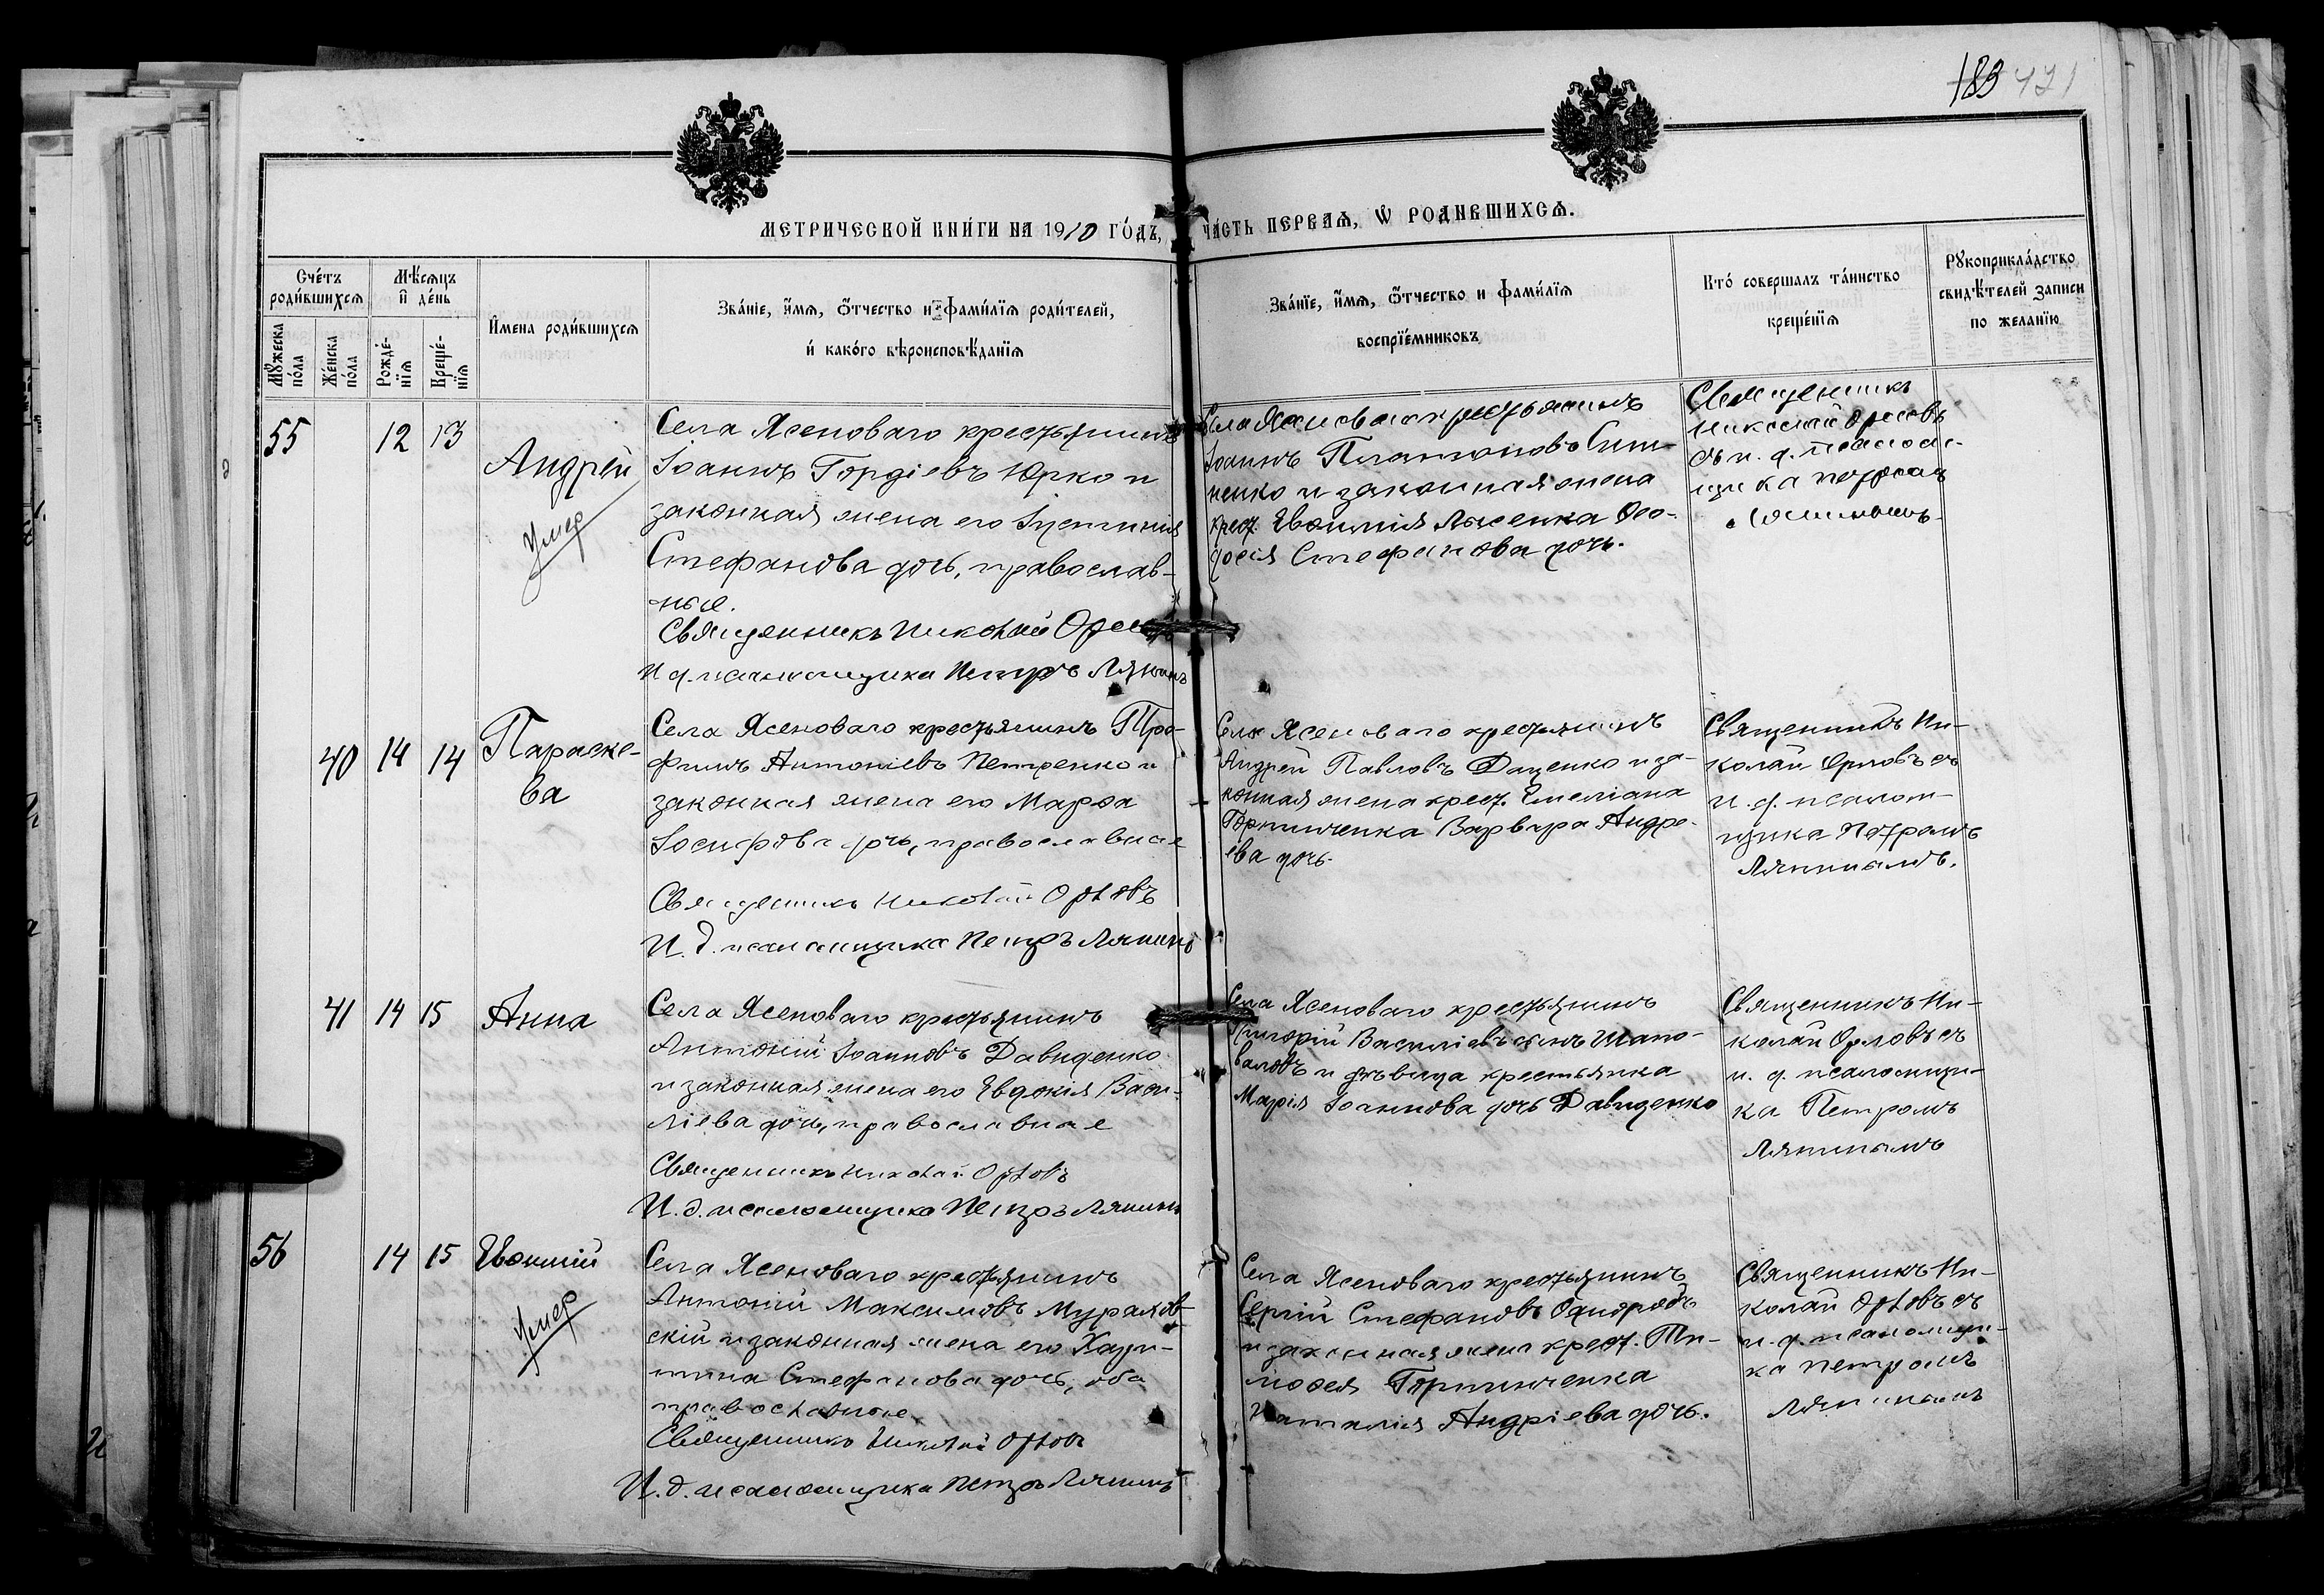 183 421
МЕТРИЧЕСКОЙ КНИ́ГИ НА 1910 ГО́ДЪ,
ЧА́СТЬ ПЕРВАѦ, Ѡ РОДИ́ВШИХСѦ.
Сче́тъ роди́вшихсѧ
Мꙋжеска по́ла
Же́нска по́ла
Мѣ́сѧцъ и҆ де́нь
Рожде́-нїѧ
Креще́-нїѧ
И҆мена роди́вшихсѧ
Зва́нїе, и҆́мѧ, ѻ҆́тчество и фами́лїѧ роди́телей,
и҆ како́го вѣроисповѣ́данїѧ
Зва́нїе, и҆́мѧ, ѻ҆́тчество и фами́лїѧ
воспрїе́мниковъ
Кто́ совершалъ та́инство
креще́нїѧ
Рꙋкоприкла́дство
свидѣ́телей записи
по жела́нїю
55
12
13
Андрей
умер
Села Ясеноваго крестьянинъ
Іоаннъ Гордіевъ Юрко и
законная жена его Іустинія
Стефанова дочь, православ-
ные.
Священникъ Николай Орловъ
И. д. псаломщика Петръ Ляпинъ
Села Ясеноваго крестьянинъ
Іоаннъ Платоновъ Сит-
ненко и законная жена
крест. Евѳимія Лысенка Ѳео-
досія Стефанова дочь.
Священникъ
Николай Орловъ
съ и. д. псалом-
щика Петромъ
Ляпинымъ.
40
14
14
Параске-
ва
Села Ясеноваго крестьянинъ Тро-
фимъ Антоніевъ Петренко и
законная жена его Марѳа
Іосифова дочь, православные
Священникъ Николай Орловъ
И. д. псаломщика Петръ Ляпинъ
Села Ясеноваго крестьянинъ
Андрей Павловъ Даценко и за-
конная жена крест. Емеліана
Горпинченка Варвара Андре-
ева дочь.
Священникъ Ни-
колай Орловъ съ
и. д. псалом-
щика Петромъ
Ляпинымъ.
41
14
15
Анна
Села Ясеноваго крестьянинъ
Антоній Іоанновъ Давиденко
и законная жена его Евдокія Васи-
ліева дочь, православные
Священникъ Николай Орловъ
И. д. псаломщика Петръ Ляпинъ
Села Ясеноваго крестьянинъ
Григорій Василіевъ сынъ Шапо-
валовъ и дѣвица крестьянка
Марія Іоаннова дочь Давиденко
Священникъ Ни-
колай Орловъ съ
и. д. псаломщи-
ка Петромъ
Ляпинымъ
56
14
15
Евѳимій
умер
Села Ясеноваго крестьянинъ
Антоній Максимовъ Муралов-
скій и законная жена его Хари-
тина Стефанова дочь, оба
православные.
Священникъ Николай Орловъ
И. д. псаломщика Петръ Ляпинъ
Села Ясеноваго крестьянинъ
Сергій Стефановъ Однорогъ
и законная жена крест. Ти-
моѳея Горпинченка
Наталія Андріева дочь.
Священникъ Ни-
колай Орловъ съ
и. д. псаломщи-
ка Петромъ
Ляпинымъ